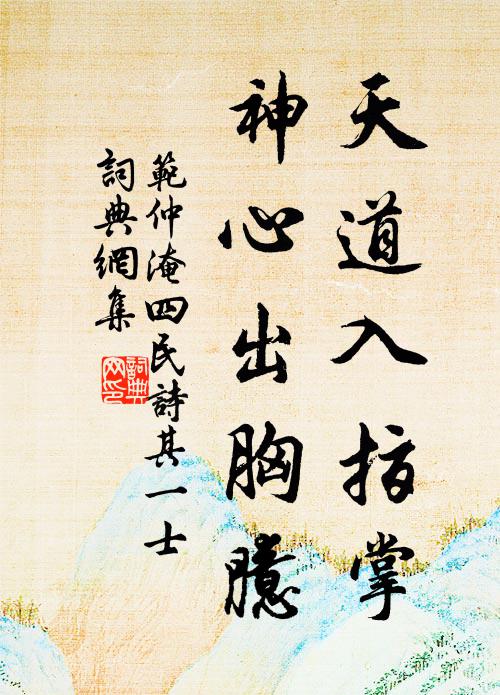 天道入指掌
神心出胸臆
範仲淹四民詩其一士
詞典網集
詞典
网印